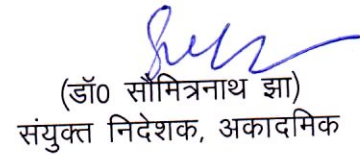 (डॉ0 सौमित्रनाथ झा)
संयुक्त निदेशक, अकादमिक